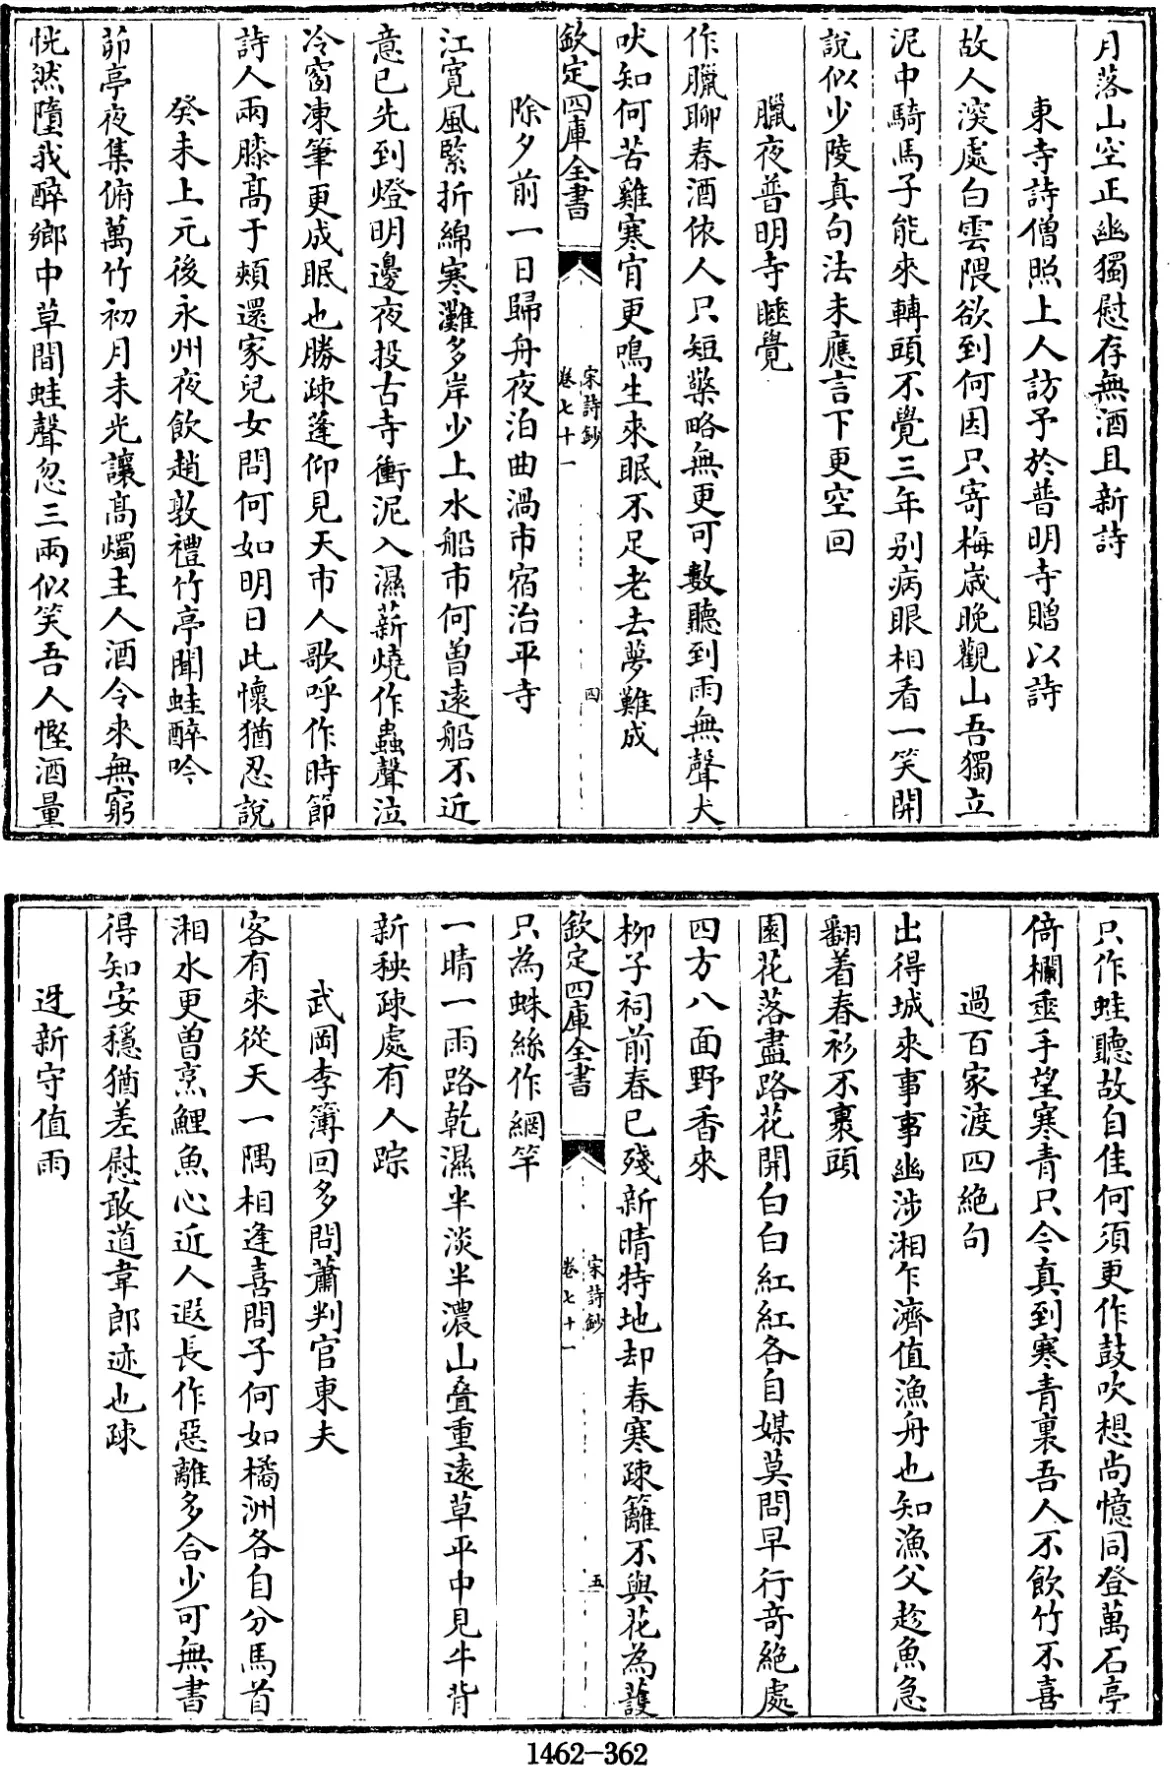 月落山空正幽獨慰存無酒且新詩
東寺詩僧照上人訪予於普明寺贈以詩
故人深處白雲隈欲到何因只寄梅歲晚觀山吾獨立
泥中騎馬子能來轉頭不覺三年别病眼相看一笑開
說似少陵真句法未應言下更空回
臘夜普明寺睡覺
作臘聊春酒依人只短檠略無更可數聽到雨無聲犬
吠知何苦雞寒肯更鳴生來眠不足老去夢難成
欽定四庫全書
宋詩鈔
卷七十一
四
除夕前一日歸舟夜泊曲渦市宿治平寺
江寛風緊折綿寒灘多岸少上水船市何曽遠船不近
意已先到燈明邊夜投古寺衝泥入濕薪燒作蟲聲泣
冷窗凍筆更成眠也勝疎蓬仰見天市人歌呼作時節
詩人兩膝髙于頰還家兒女問何如明日此懷猶忍說
癸未上元後永州夜飲趙敦禮竹亭聞蛙醉吟
茆亭夜集俯萬竹初月未光讓髙燭主人酒令來無窮
恍然墮我醉鄉中草間蛙聲忽三兩似笑吾人慳酒量
只作蛙聽故自佳何須更作鼓吹想尚憶同登萬石亭
倚欄垂手望寒青只今真到寒青裏吾人不飲竹不喜
過百家渡四絶句
出得城來事事幽涉湘乍濟值漁舟也知漁父趁魚急
翻着春衫不裹頭
園花落盡路花開白白紅紅各自媒莫問早行奇絶處
四方八面野香來
柳子祠前春已殘新晴特地却春寒疎籬不與花為護
欽定四庫全書
宋詩鈔
卷七十一
五
只為蛛絲作網竿
一晴一雨路乾濕半淡半濃山叠重遠草平中見牛背
新秧疎處有人踪
武岡李簿回多問蕭判官東夫
客有來從天一隅相逢喜問子何如橘洲各自分馬首
湘水更曽烹鯉魚心近人遐長作惡離多合少可無書
得知安穩猶差慰敢道韋郎迹也疎
迓新守值雨
1462-362